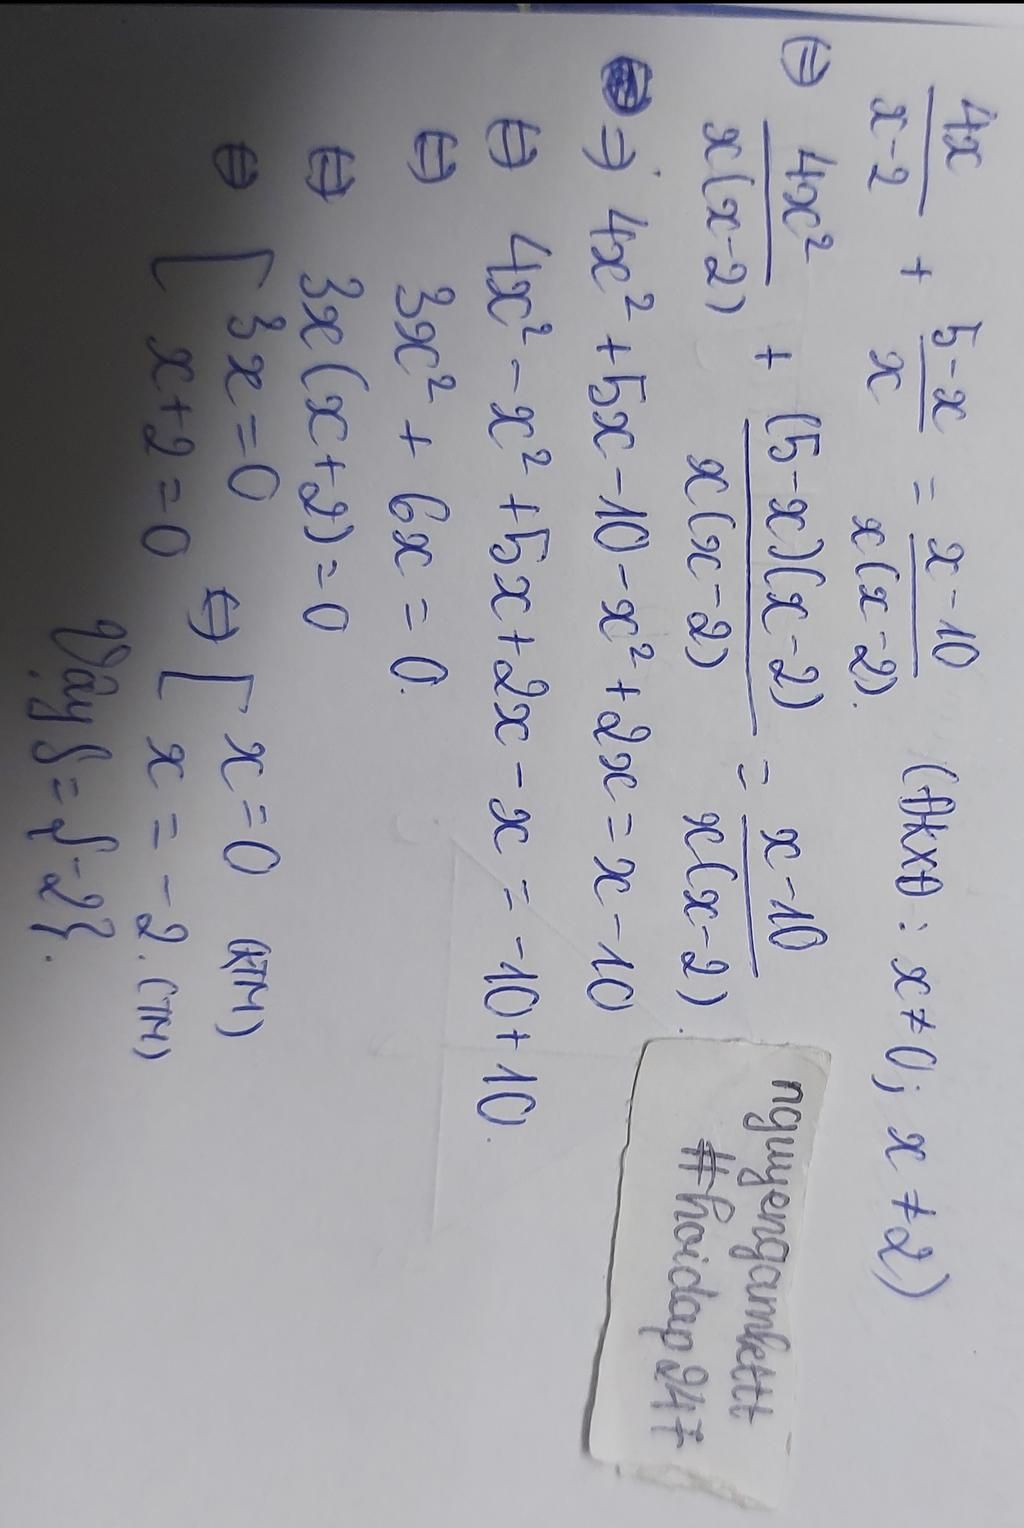 4x/(x-2) + (5-x)/x = (x-10)/(x(x-2)). (ĐKXĐ: x≠0; x≠2)
⇔ 4x²/(x(x-2)) + ((5-x)(x-2))/(x(x-2)) = (x-10)/(x(x-2)).
⇒ 4x² + 5x - 10 - x² + 2x = x - 10
⇔ 4x² - x² + 5x + 2x - x = -10 + 10.
⇔ 3x² + 6x = 0.
⇔ 3x(x+2) = 0
⇔ [ 3x = 0 ⇔ [ x = 0 (KTM)
x + 2 = 0 x = -2. (TM)
Vậy S = {-2}.
nguyengamkttt
#hoidap247